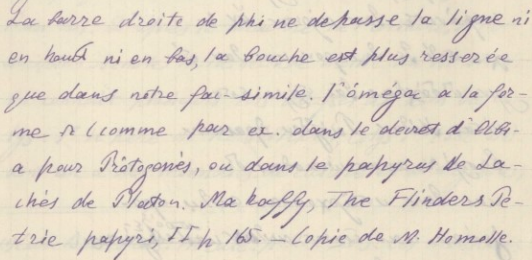 La barre droite de phi ne depasse la ligne ni
en haut ni en bas, la bouche est plus resserée
que dans notre fac-simile. l'ôméga a la for-
me Ω (comme par ex. dans le decret d'Olbi-
a pour Prôtogenès, ou dans le papyrus de La-
chès de Platon. Mahaffy, The Flinders Pe-
trie papyri, II p 165. — Copie de M. Homolle.